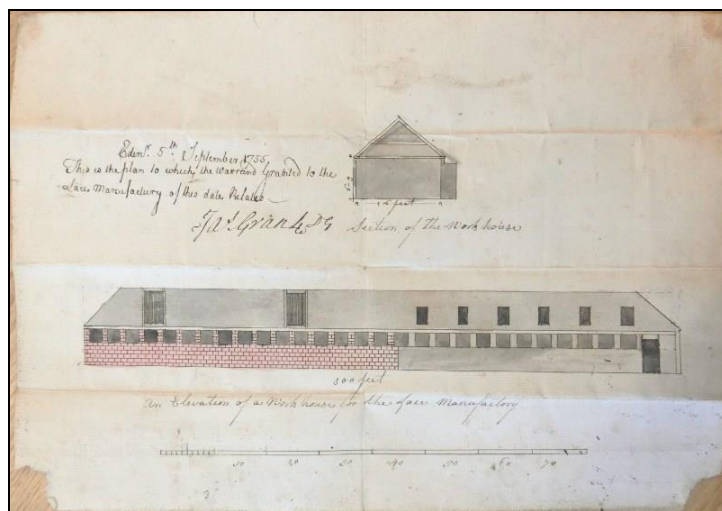 Edinr. 5th September 1755
This is the plan to which the Warrand Granted to the
Lace Manufactury of this date Relates
Jas Grant DG
Section of the Work house
feet
100 feet
An Elevation of a Work house for the Lace Manufactory
10 20 30 40 50 60 70